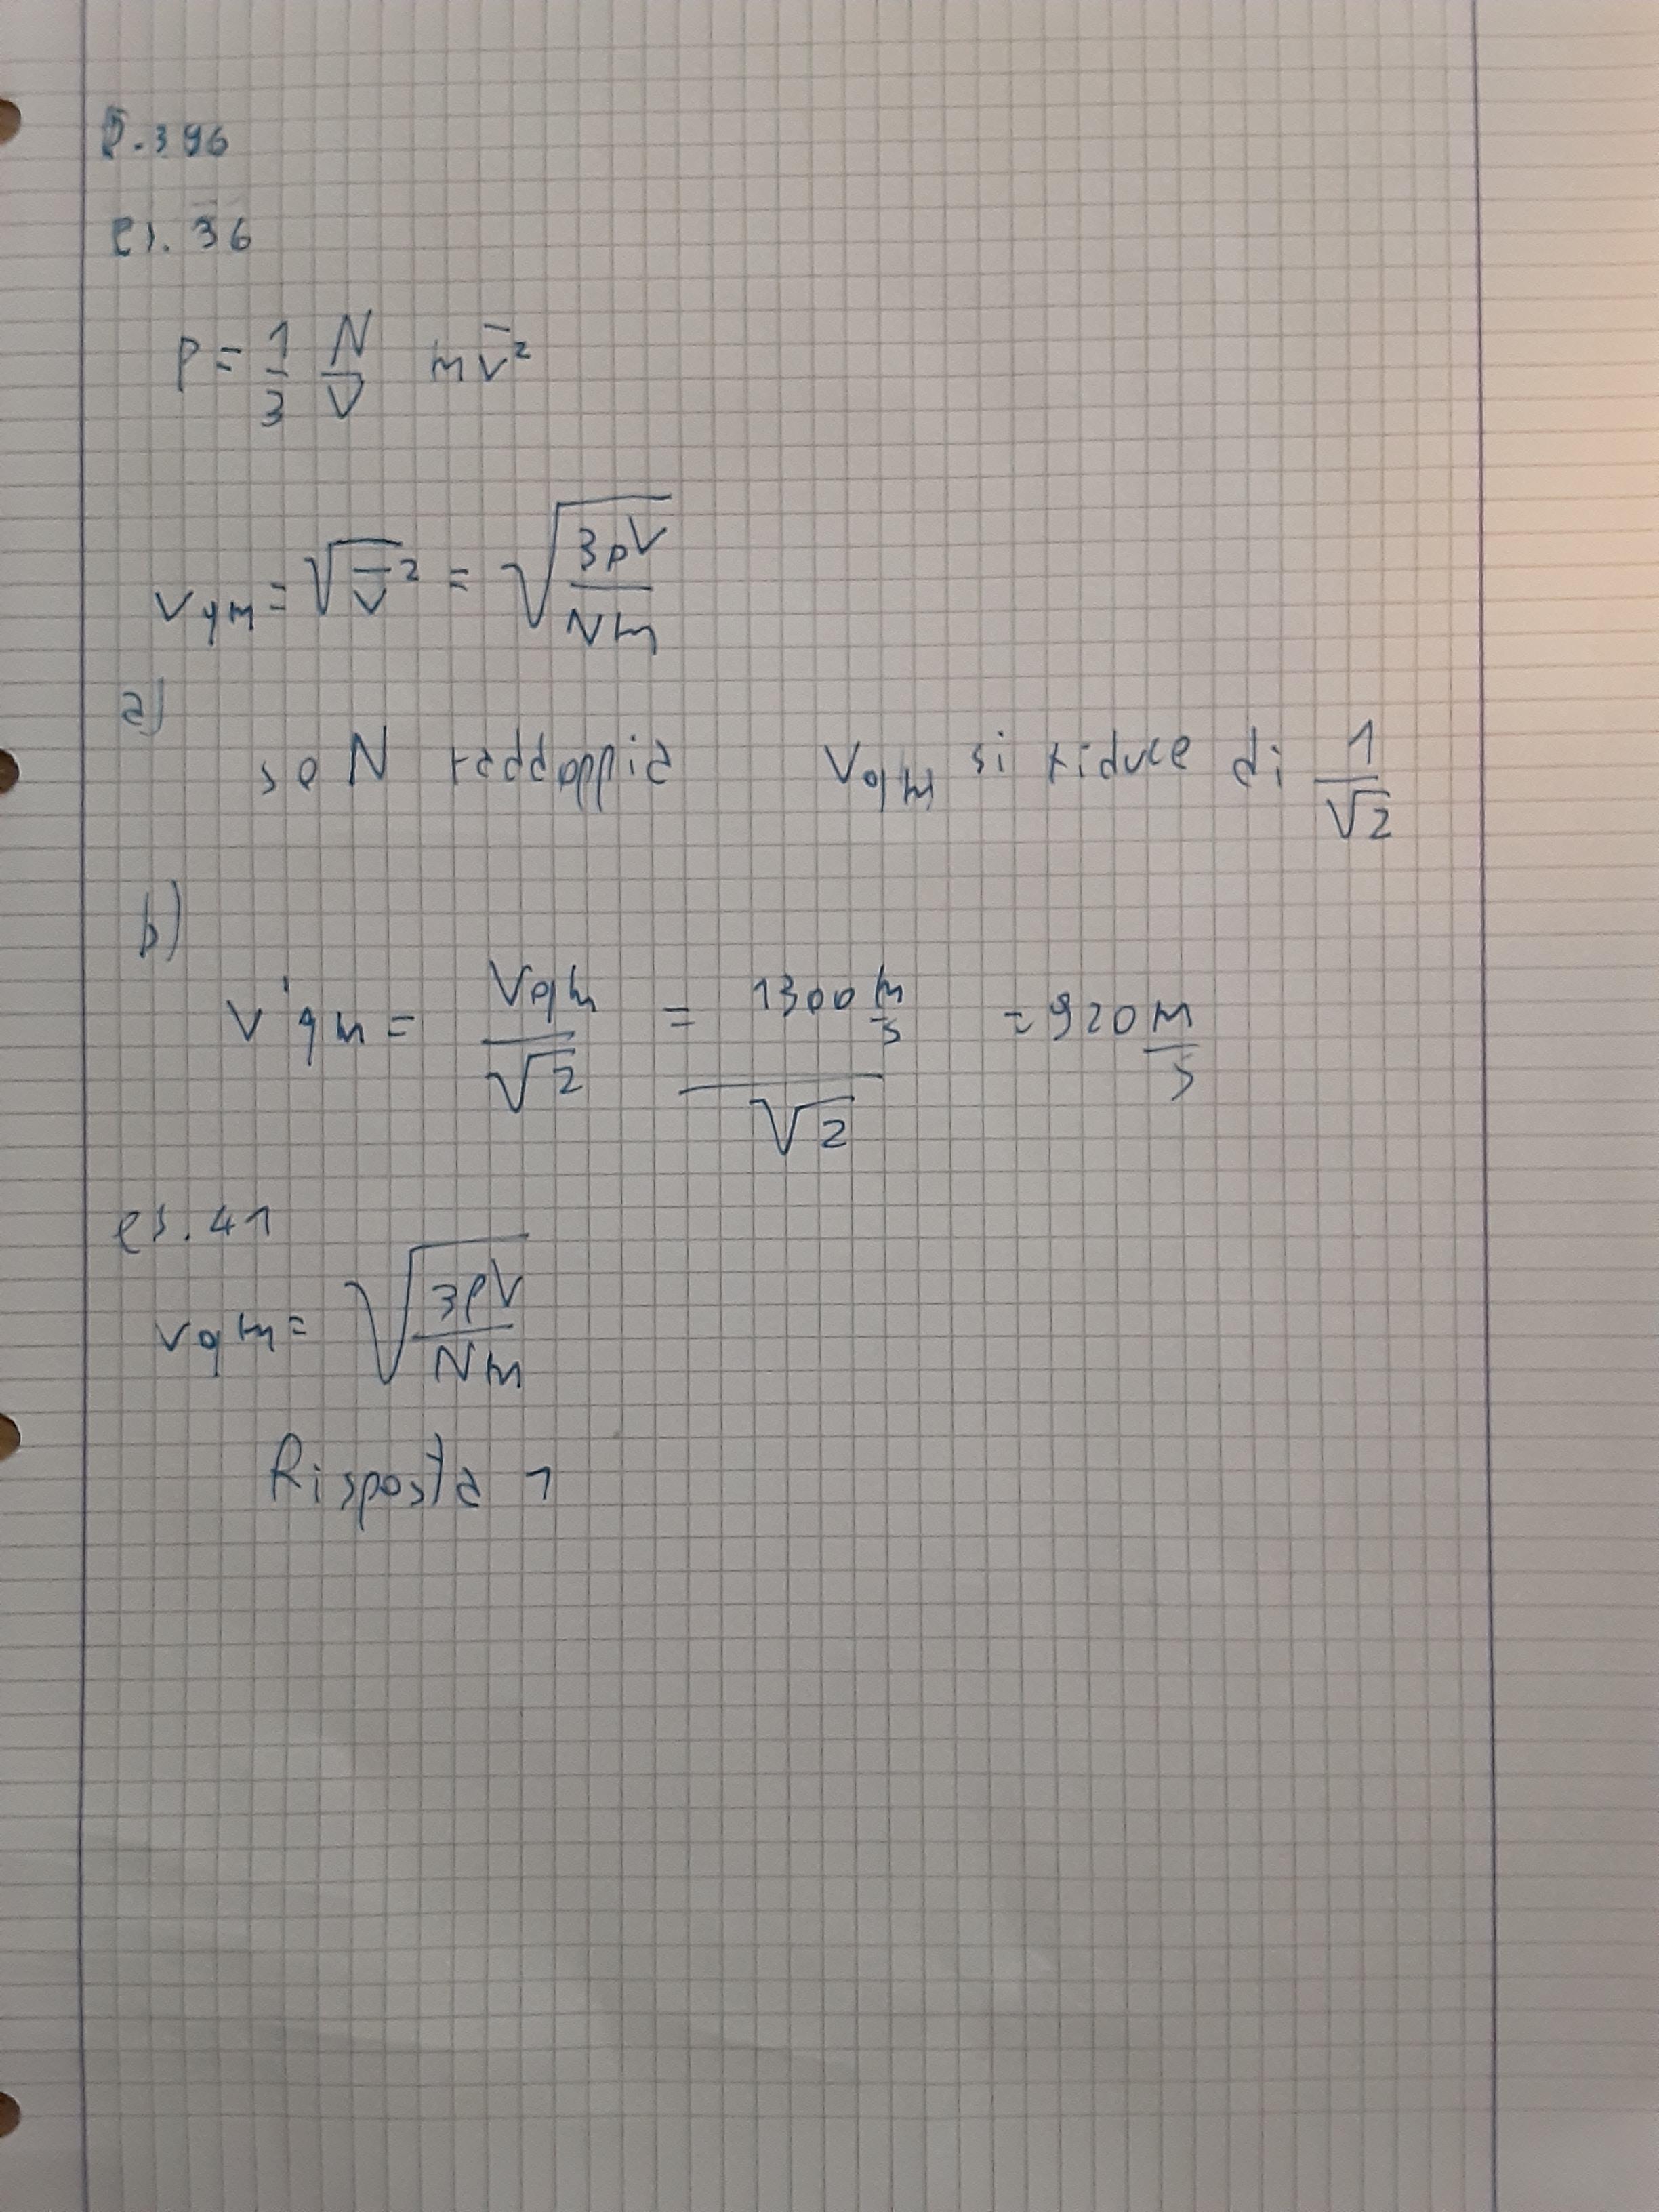 P.396
es. 36
p = 1/3 N/V m v̄²
vqm = √v̄² = √(3pV/Nm)
a)
se N raddoppia vqm si riduce di 1/√2
b)
v'qm = vqm/√2 = 1300 m/s / √2 = 920 m/s
es. 41
vqm = √(3pV/Nm)
Risposta 1